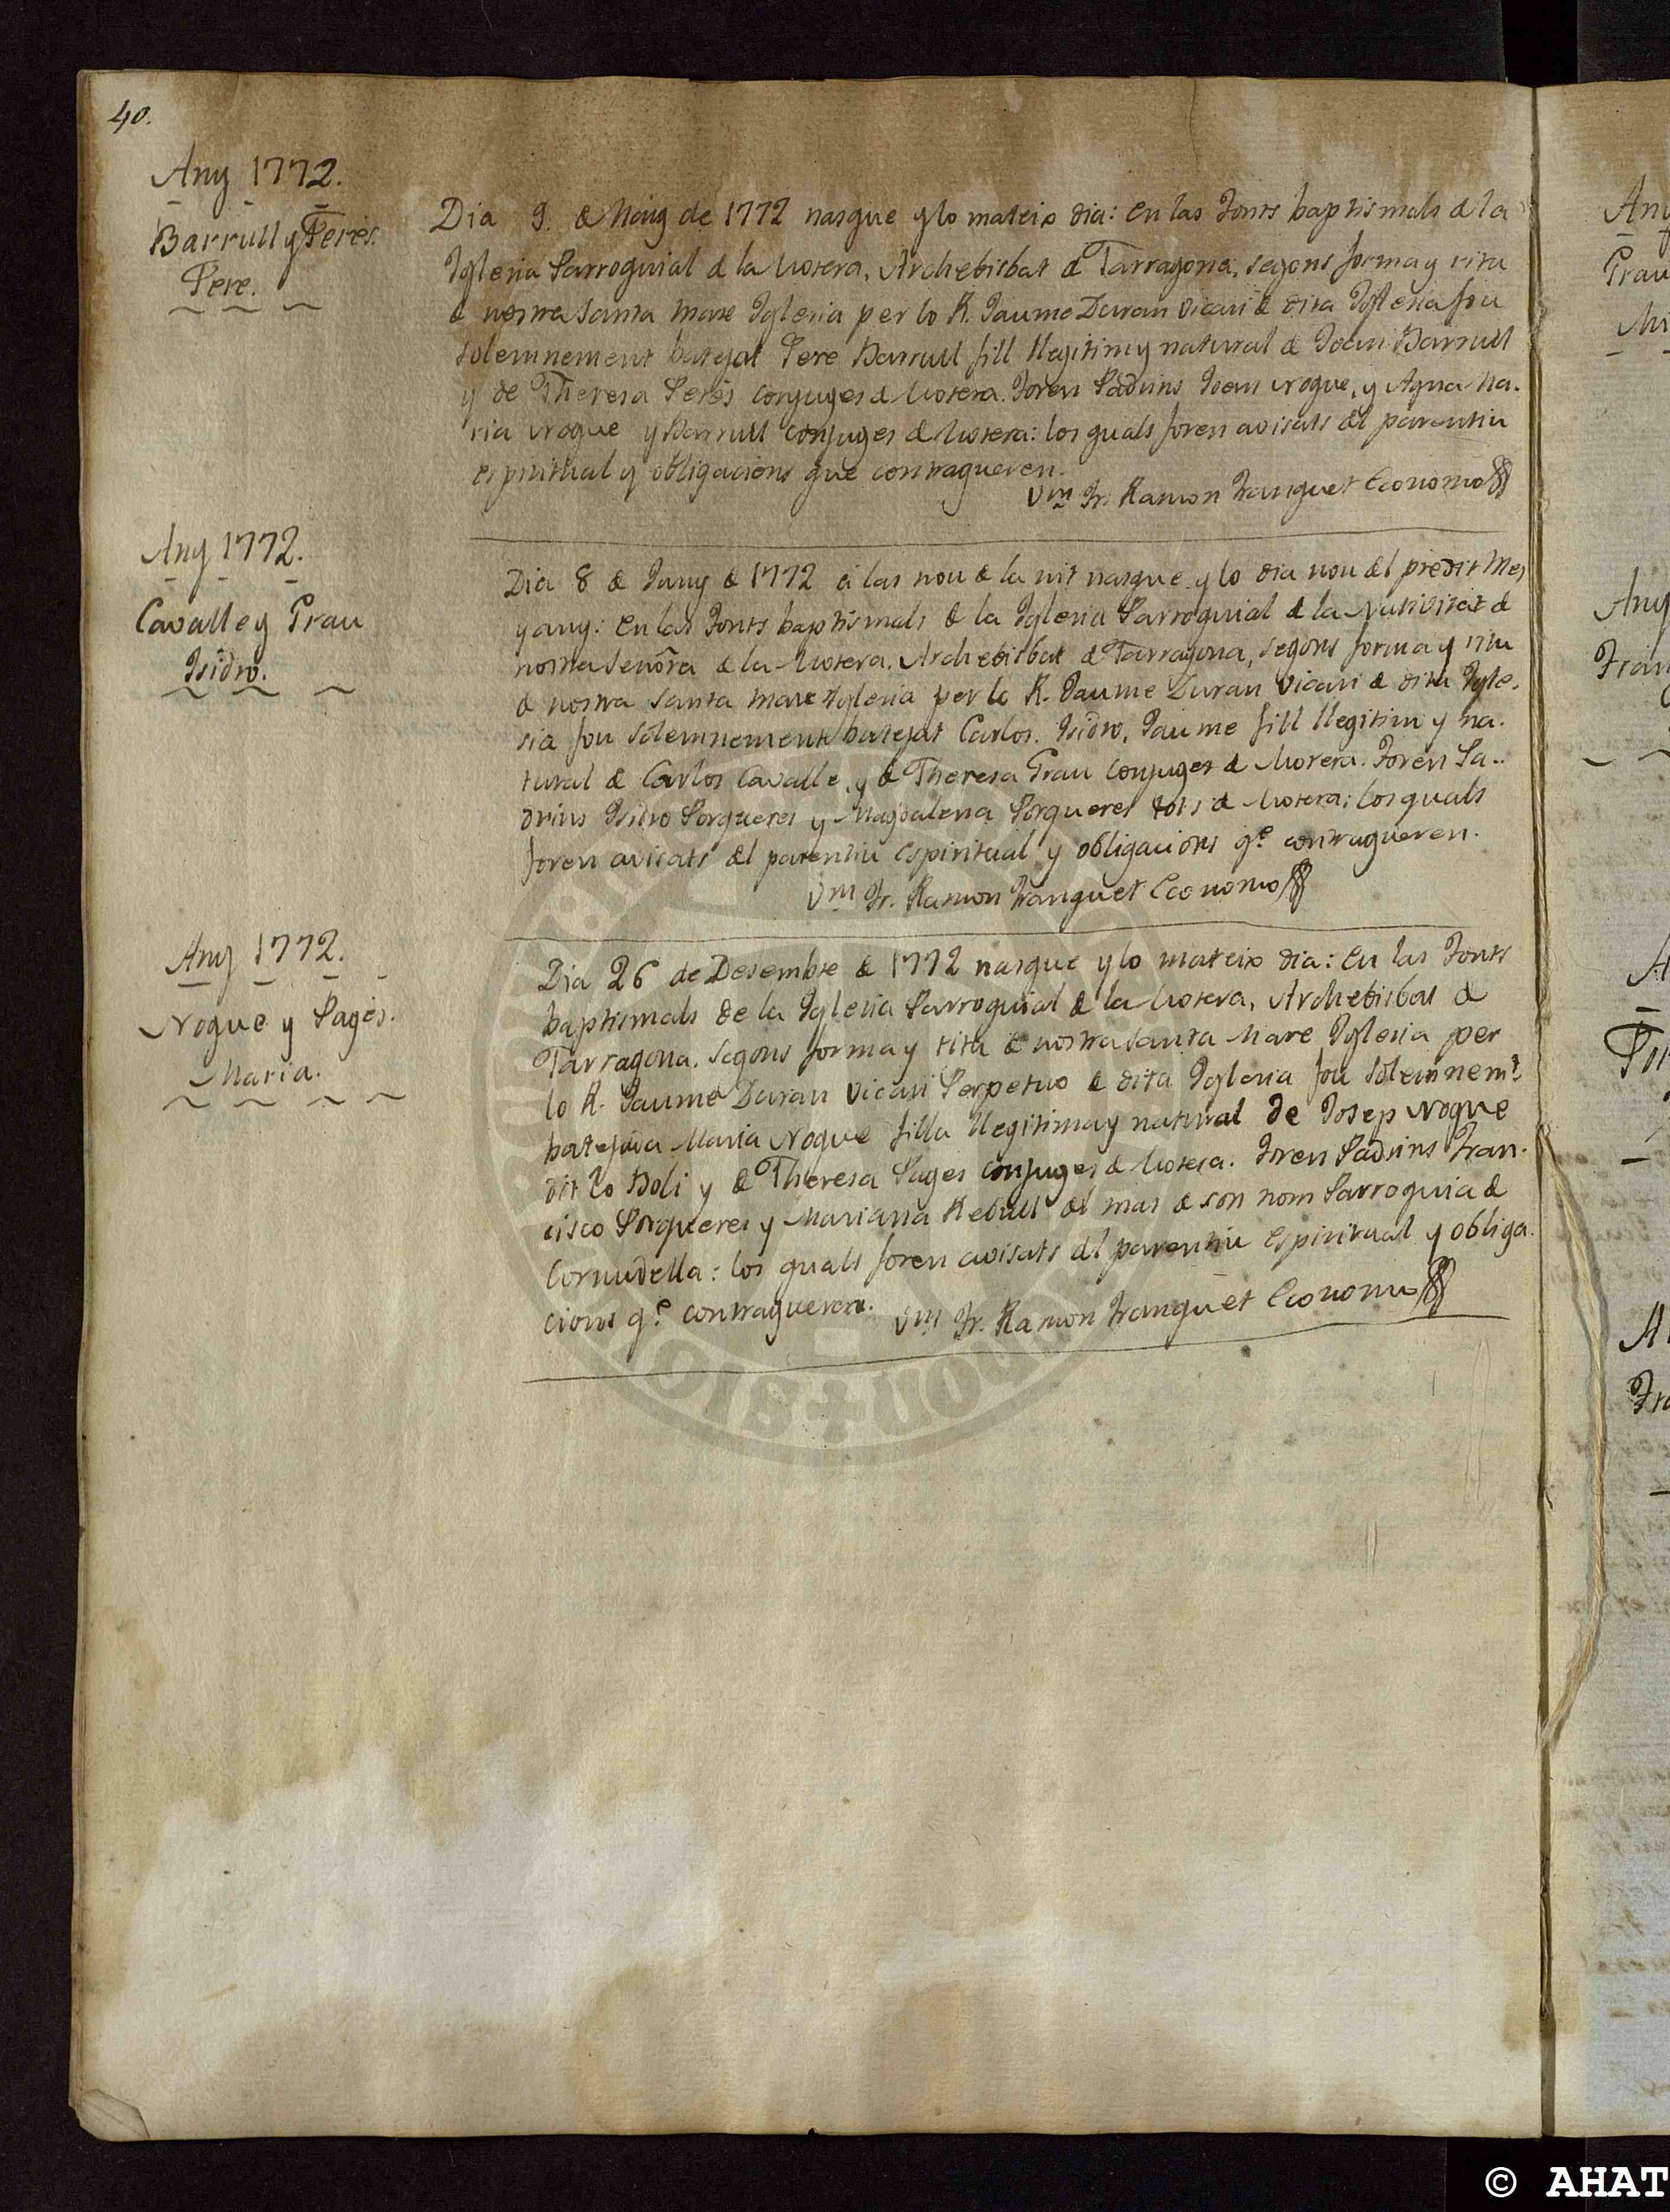 40.
Any 1772.
Barrull y Perés.
Pere.
Dia 9. de Maig de 1772 nasque y lo mateix dia: en las Fonts baptismals de la
Iglesia Parroquial de la Morera, Archebisbat de Tarragona, segons forma y ritu
de nostra Santa Mare Iglesia per lo R. Jaume Duran Vicari de dita Iglesia fou
solemnement batejat Pere Barrull fill llegitim y natural de Joan Barrull
y de Theresa Perés conjuges de Morera. Foren Padrins Joan Nogue, y Agna Ma.
ria Nogue y Barrull conjuges de Morera: los quals foren avisats del parentiu
espiritual y obligacions que contragueren.
Fr. Ramon Franquet Economo
Any 1772.
Cavalle y Grau
Isidro.
Dia 8 de Juny de 1772 á las nou de la nit nasque y lo dia nou del predit Mes
y any: en las Fonts baptismals de la Iglesia Parroquial de la Nativitat de
nostra Señora de la Morera, Archebisbat de Tarragona, segons forma y ritu
de nostra Santa Mare Iglesia per lo R. Jaume Duran Vicari de dita Igle.
sia fou solemnement batejat Carlos. Isidro, Jaume fill llegitim y na.
tural de Carlos Cavalle, y de Theresa Grau conjuges de Morera. Foren Pa..
drins Isidro Porqueres y Magdalena Porqueres tots de Morera; los quals
foren avisats del parentiu espiritual y obligacions q.e contragueren.
Fr. Ramon Franquet Economo
Any 1772.
Nogue y Pagés.
Maria.
Dia 26 de Desembre de 1772 nasque y lo mateix dia: en las Fonts
baptismals de la Iglesia Parroquial de la Morera, Archebisbat de
Tarragona, segons forma y ritu de nostra Santa Mare Iglesia per
lo R. Jaume Duran Vicari Perpetuo de dita Iglesia fou solemnem.t
batejada Maria Nogue filla llegitima y natural de Josep Nogue
dit lo Boli y de Theresa Pages conjuges de Morera. Foren Padrins Fran.
cisco Porqueres y Mariana Rebull del mas de son nom Parroquia de
Cornudella: los quals foren avisats del parentiu espiritual y obliga.
cions q.e contragueren. Fr. Ramon Franquet Economo
© AHAT